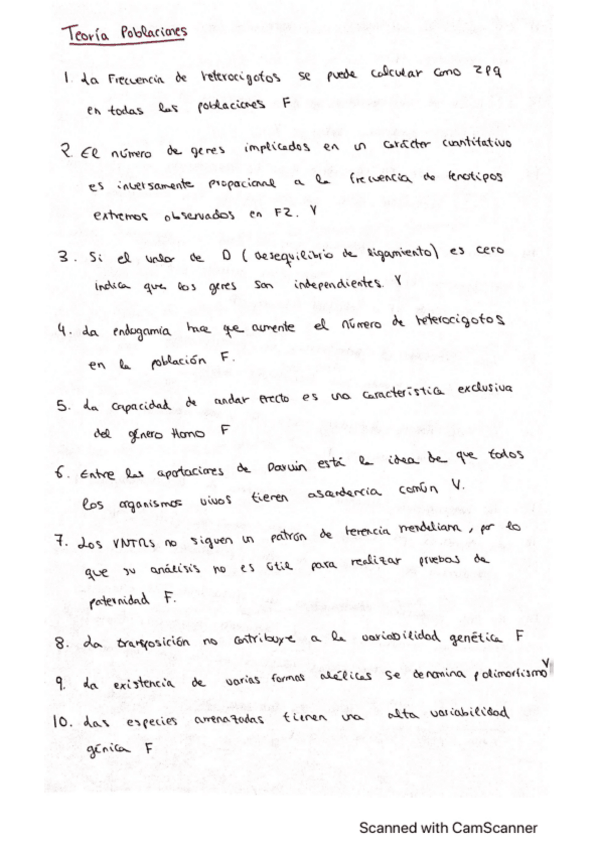 Teoría Poblaciones
1. La Frecuencia de heterocigotos se puede calcular como 2pq
en todas las poblaciones F
2. El número de genes implicados en un carácter cuantitativo
es inversamente propocional a la frecuencia de fenotipos
extremos observados en F2. V
3. Si el valor de D (desequilibrio de ligamiento) es cero
indica que los genes son independientes. V
4. La endogamía hace que aumente el número de heterocigotos
en la población F.
5. La capacidad de andar erecto es una característica exclusiva
del género Homo F
6. Entre las aportaciones de Darwin está la idea de que todos
los organismos vivos tienen ascendencia común V.
7. Los VNTRs no siguen un patrón de herencia mendeliana, por lo
que su análisis no es útil para realizar pruebas de
paternidad F.
8. La transposición no contribuye a la variabilidad genética F
9. La existencia de varias formas alélicas se denomina polimorfismo V
10. Las especies amenazadas tienen una alta variabilidad
génica F
Scanned with CamScanner